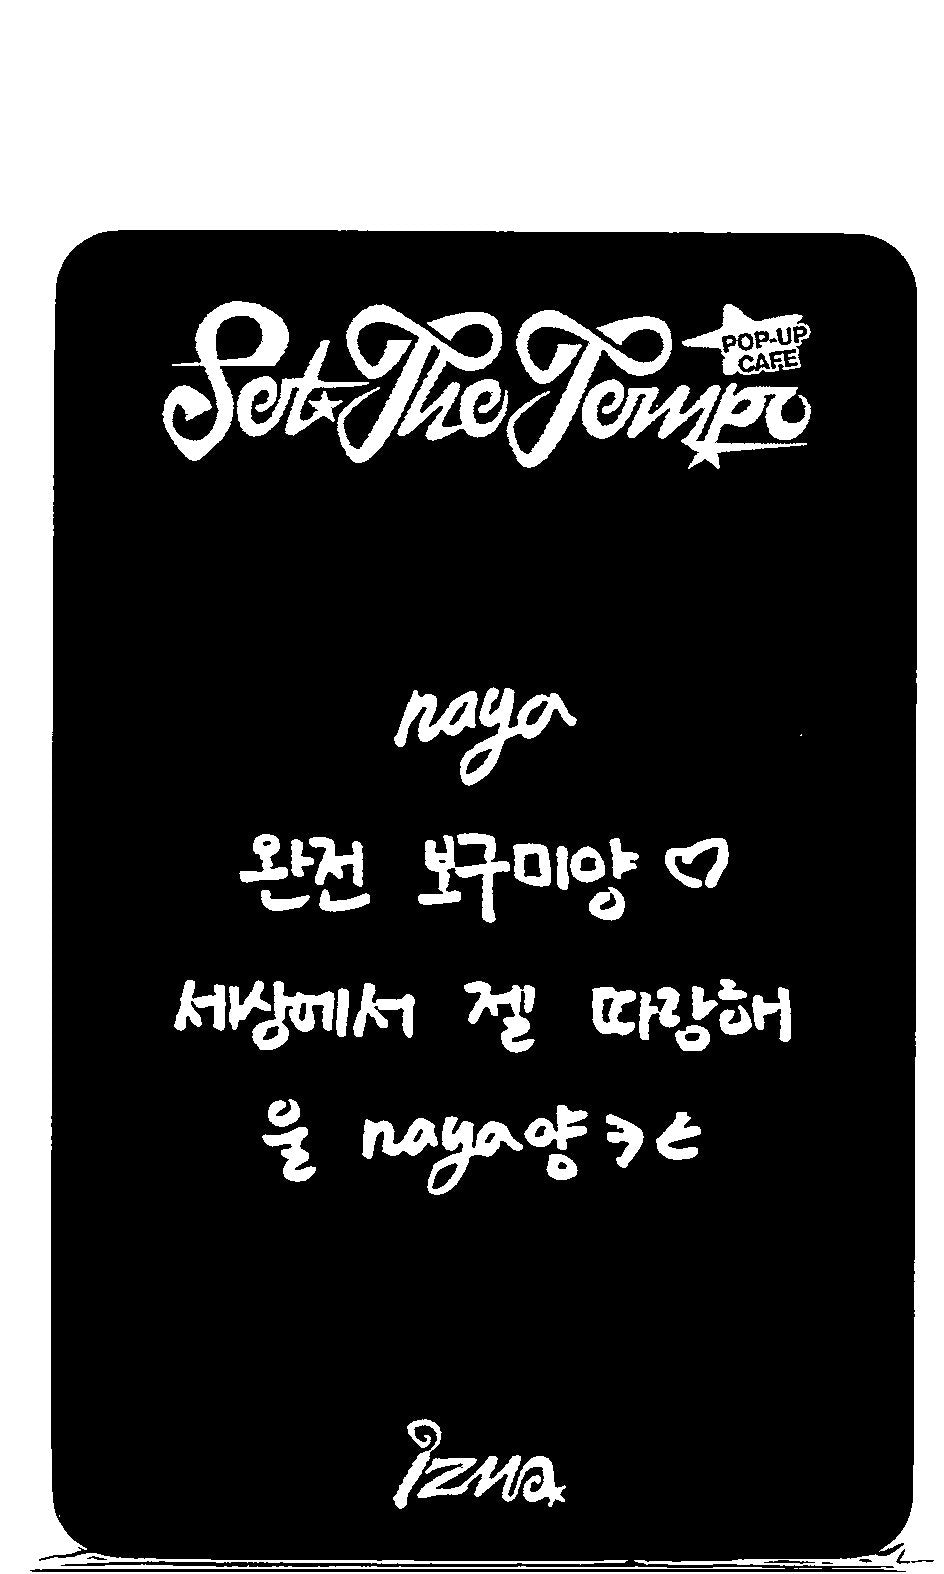 Set The Tempo
POP-UP
CAFE
naya
완전 보구미양♡
세상에서 젤 따랑해
울 naya양ㅋㄷ
izna